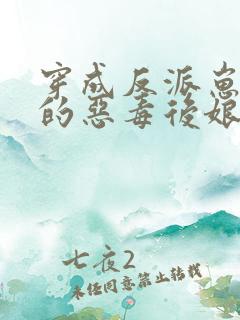 穿成反派崽
的惡毒後娘
七夜2
未经同意禁止转载